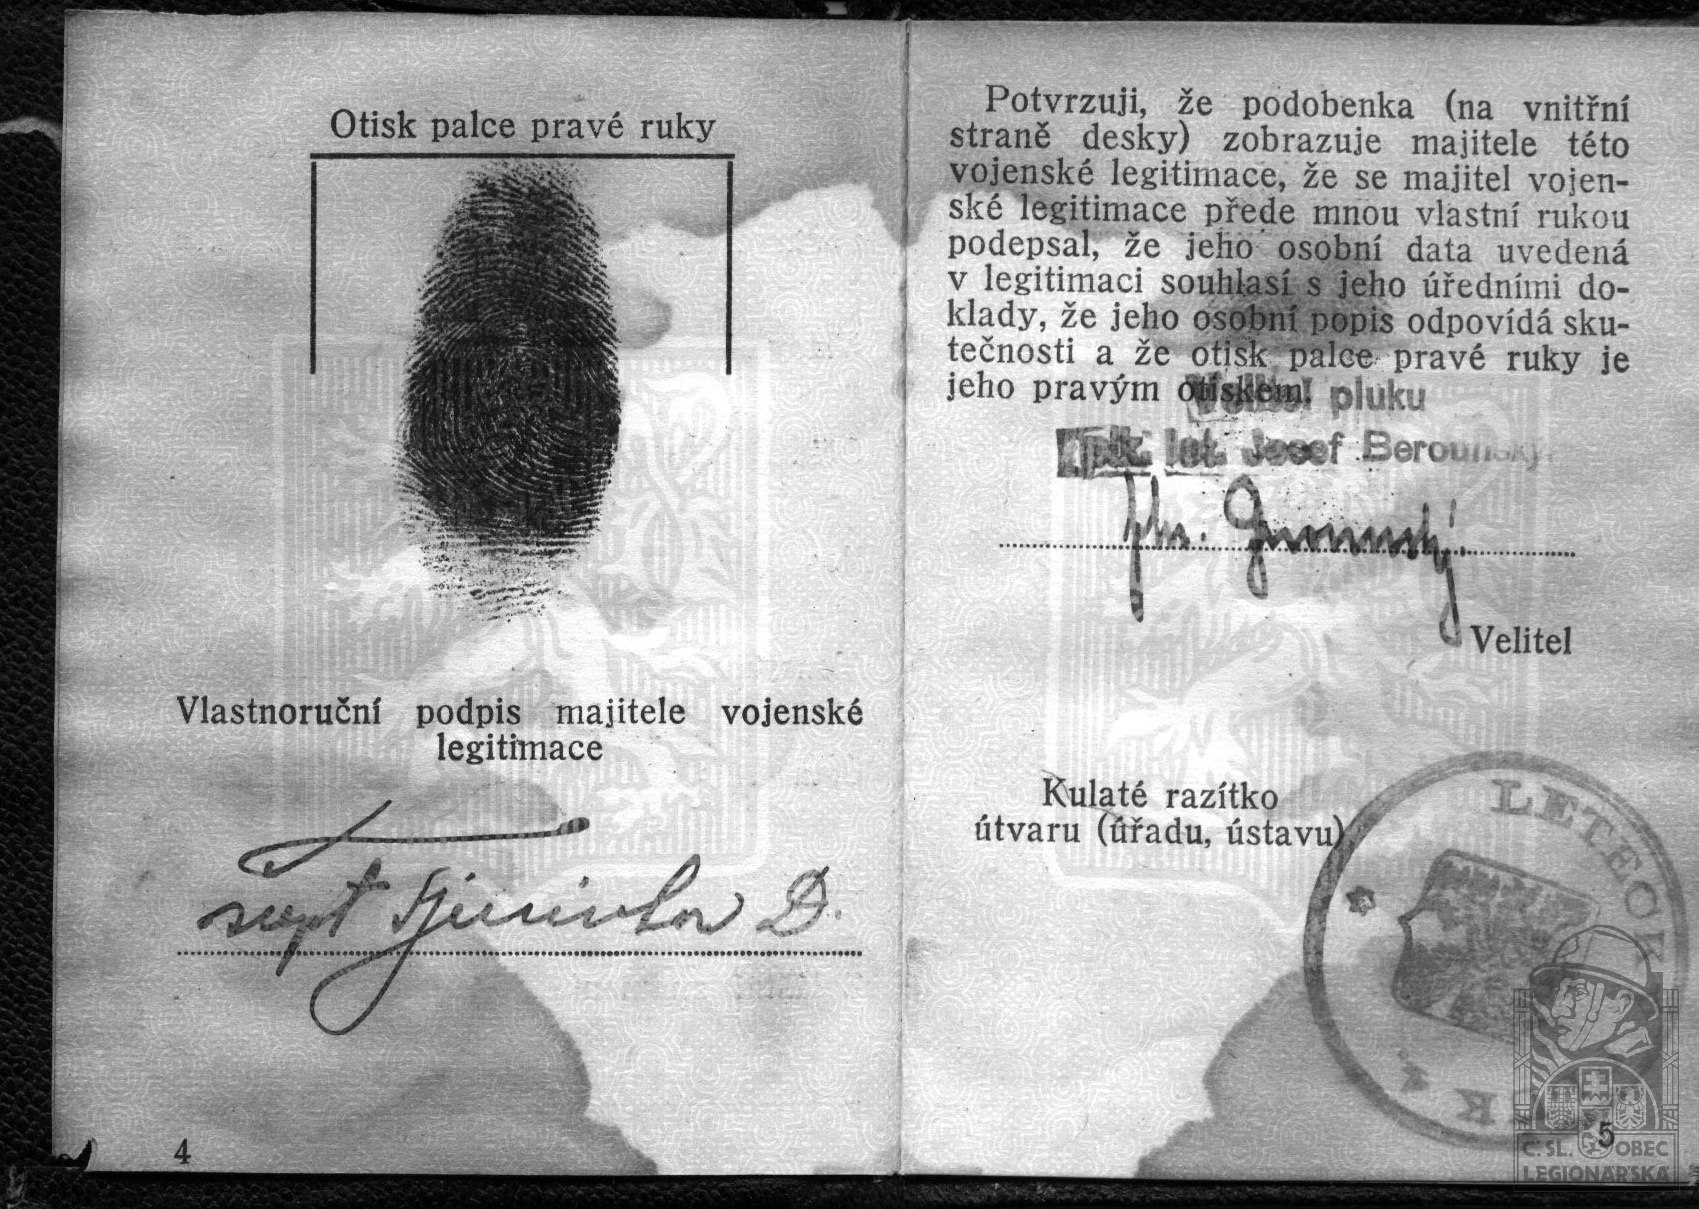 Otisk palce pravé ruky
Vlastnoruční podpis majitele vojenské
legitimace
4
Potvrzuji, že podobenka (na vnitřní
straně desky) zobrazuje majitele této
vojenské legitimace, že se majitel vojen-
ské legitimace přede mnou vlastní rukou
podepsal, že jeho osobní data uvedená
v legitimaci souhlasí s jeho úředními do-
klady, že jeho osobní popis odpovídá sku-
tečnosti a že otisk palce pravé ruky je
jeho pravým otiskem.
Velitel pluku
pplk. let. Josef Berounský
Velitel
Kulaté razítko
útvaru (úřadu, ústavu)
LETECK
5
Č. SL. OBEC
LEGIONÁŘSKÁ